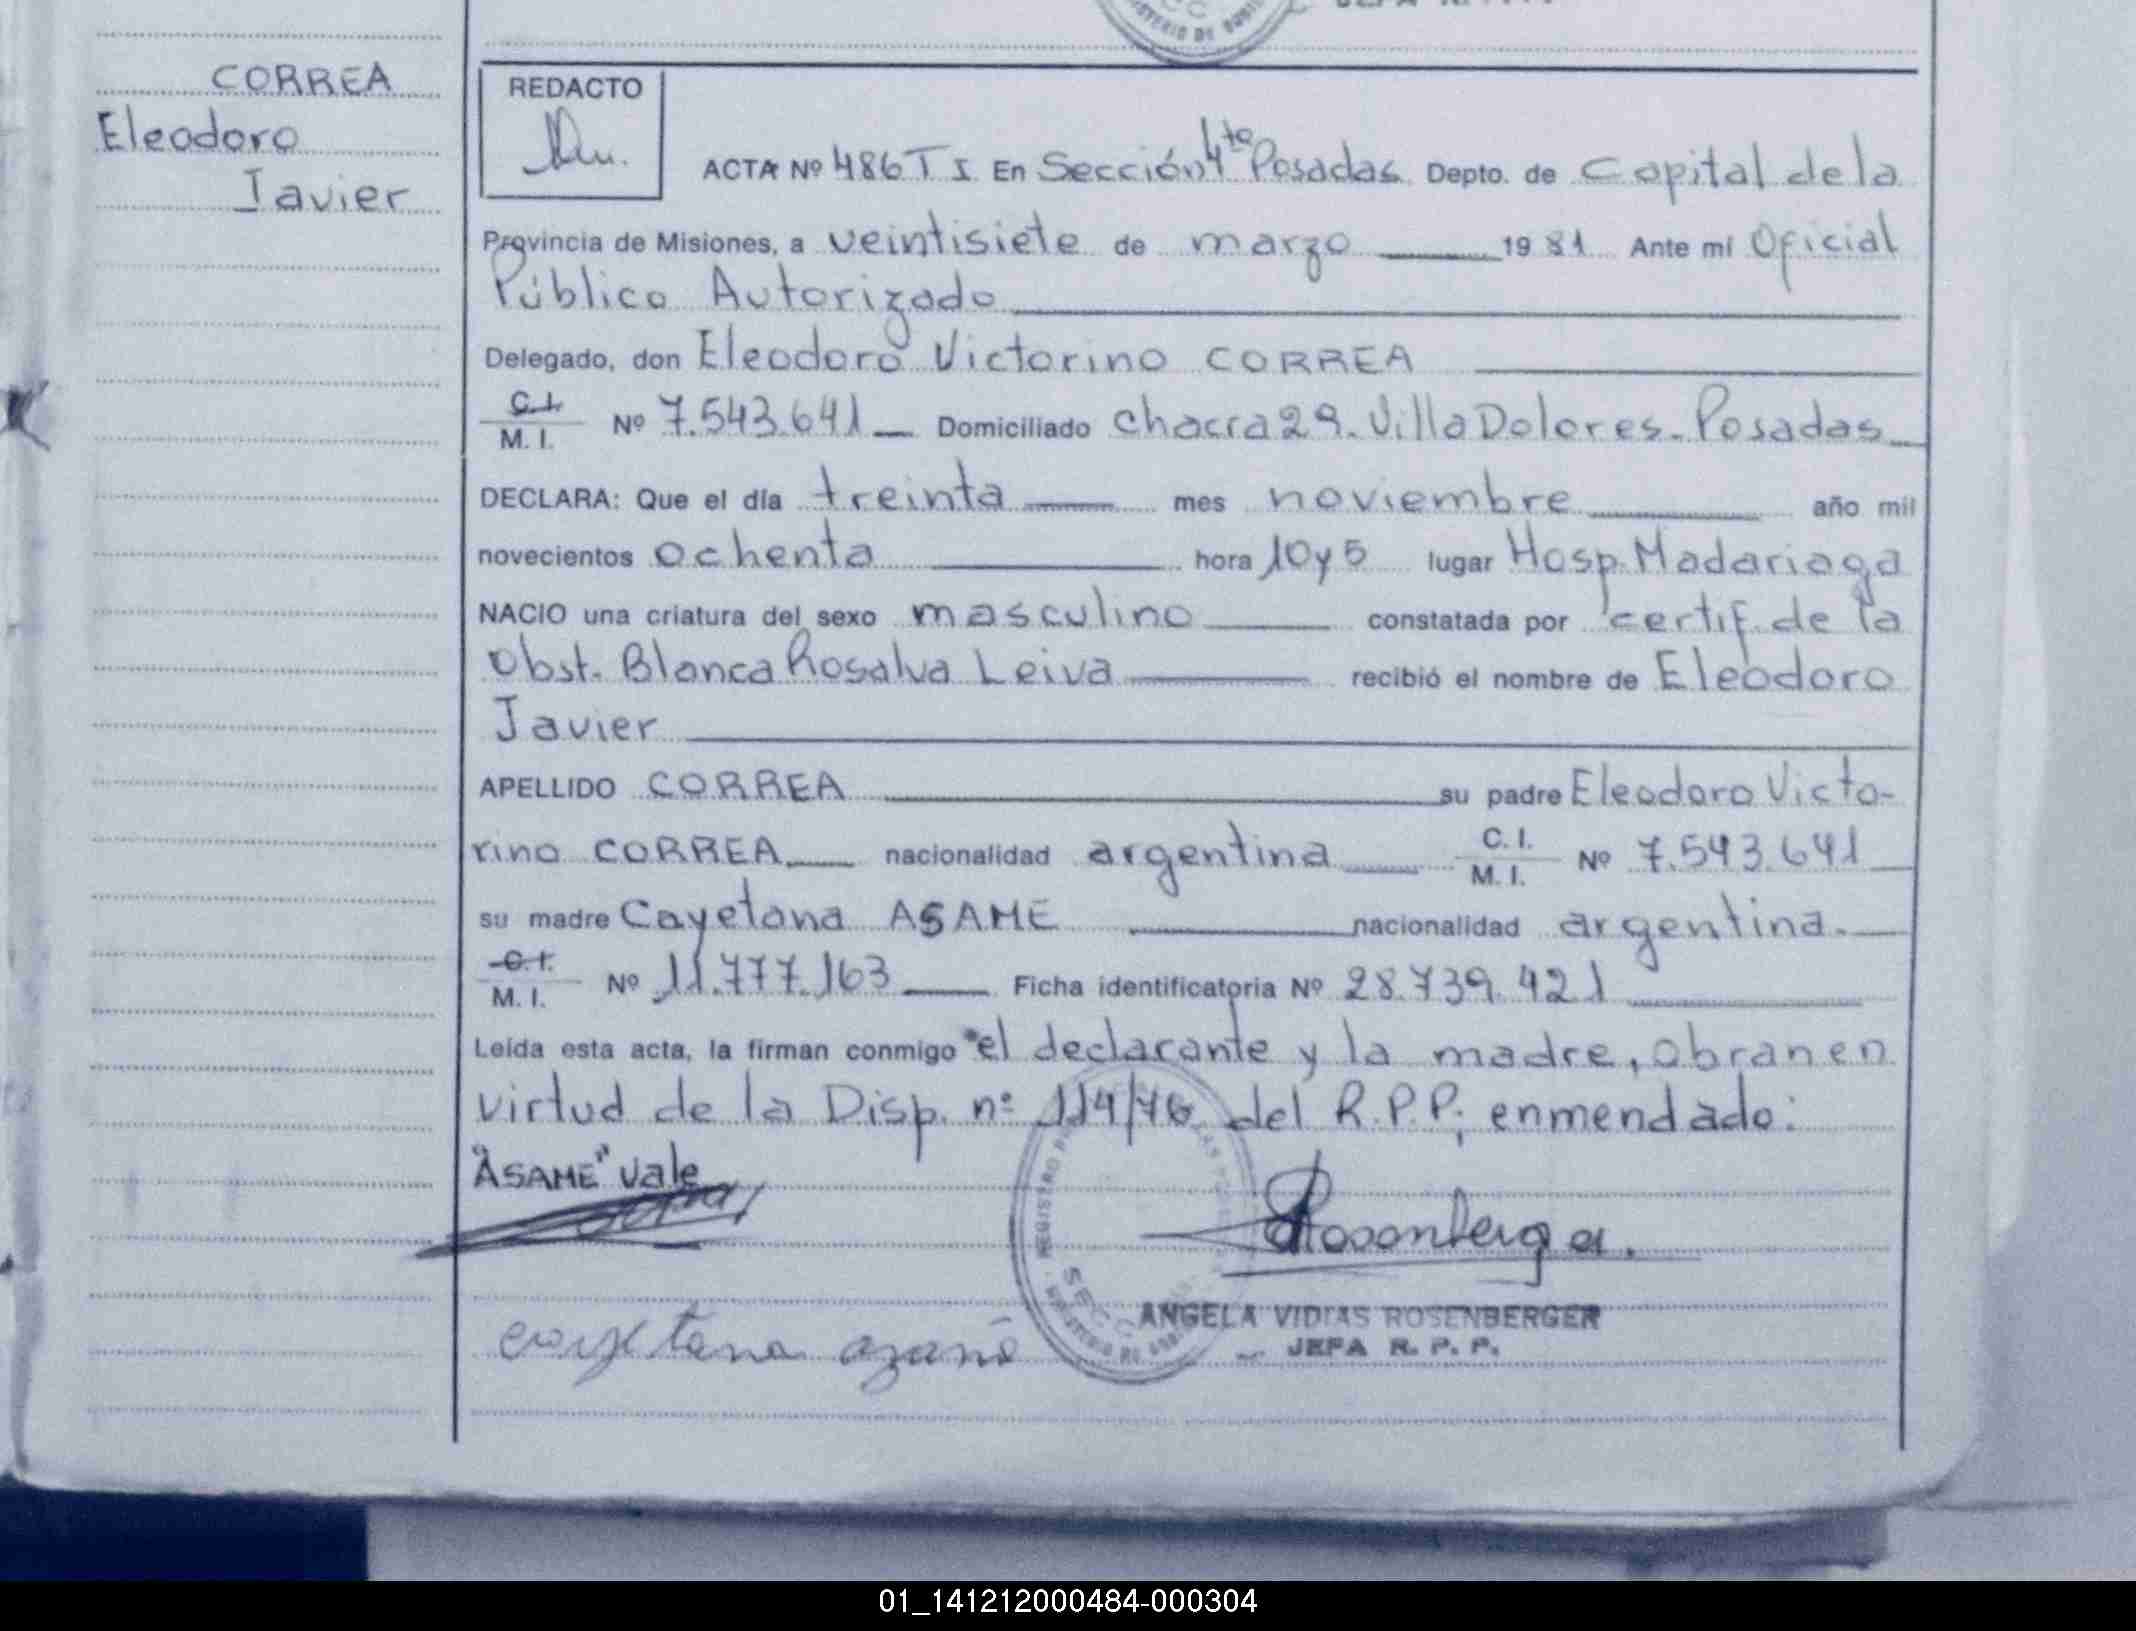 CORREA
Eleodoro
Javier
REDACTO
ACTA Nº 486 T I En Sección 4ta Posadas Depto. de Capital de la
Provincia de Misiones, a veintisiete de marzo 1981 Ante mí Oficial
Público Autorizado
Delegado, don Eleodoro Victorino CORREA
C.I.
M. I. Nº 7.543.641 Domiciliado Chacra 29. Villa Dolores. Posadas
DECLARA: Que el día treinta mes noviembre año mil
novecientos ochenta hora 10 y 5 lugar Hosp. Madariaga
NACIO una criatura del sexo masculino constatada por certif. de la
Obst. Blanca Rosalva Leiva recibió el nombre de Eleodoro
Javier
APELLIDO CORREA su padre Eleodoro Victo-
rino CORREA nacionalidad argentina C. I. M. I. Nº 7.543.641
su madre Cayetana ASAME nacionalidad argentina.
C. I.
M. I. Nº 11.777.163 Ficha identificatoria Nº 28.739.421
Leída esta acta, la firman conmigo el declarante y la madre, obran en
virtud de la Disp. nº 114/76 del R.P.P; enmendado:
"ASAME" vale
Rosenberger
ANGELA VIDIAS ROSENBERGER
JEFA R. P. P.
cayetana
REGISTRO
SECC
MINISTERIO DE GOBIERNO
01_141212000484-000304